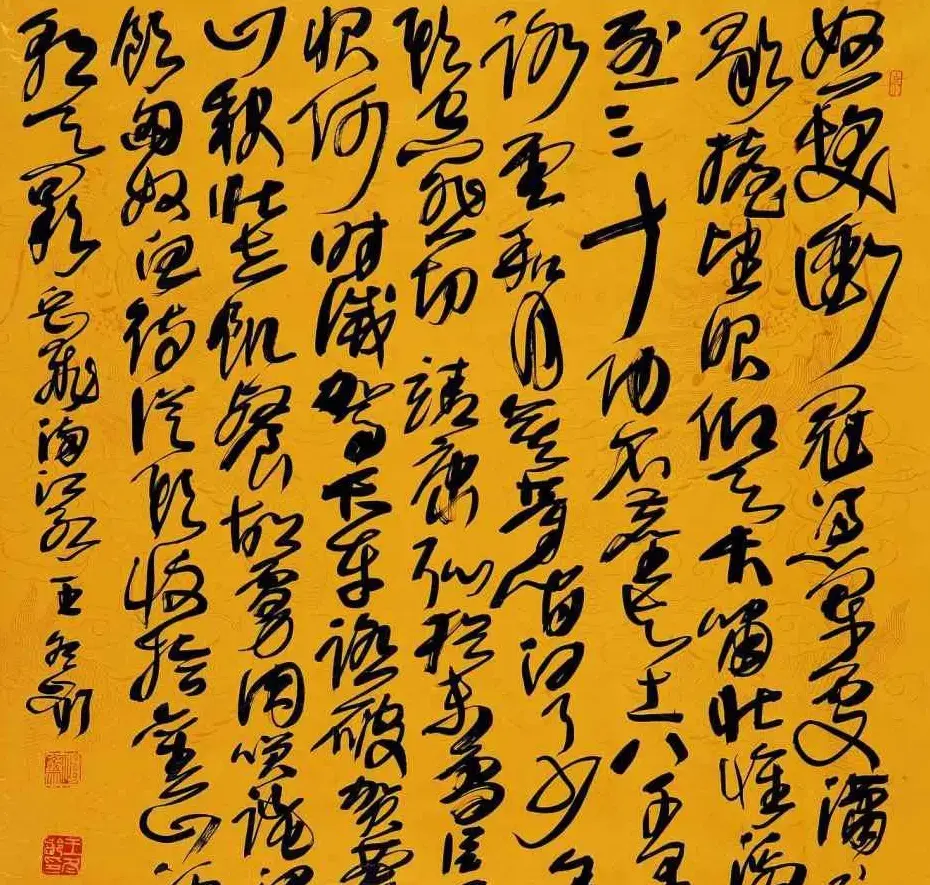 怒髮衝冠憑闌處瀟
歇擡望眼仰天長嘯壯懷激
烈三十功名塵與土八千里
路雲和月莫等閒白了少年
頭空悲切靖康恥猶未雪臣
恨何時滅駕長車踏破賀蘭
山缺壯志飢餐胡虜肉笑談渴
飲匈奴血待從頭收拾舊山河
朝天闕 岳飛滿江紅 王冬